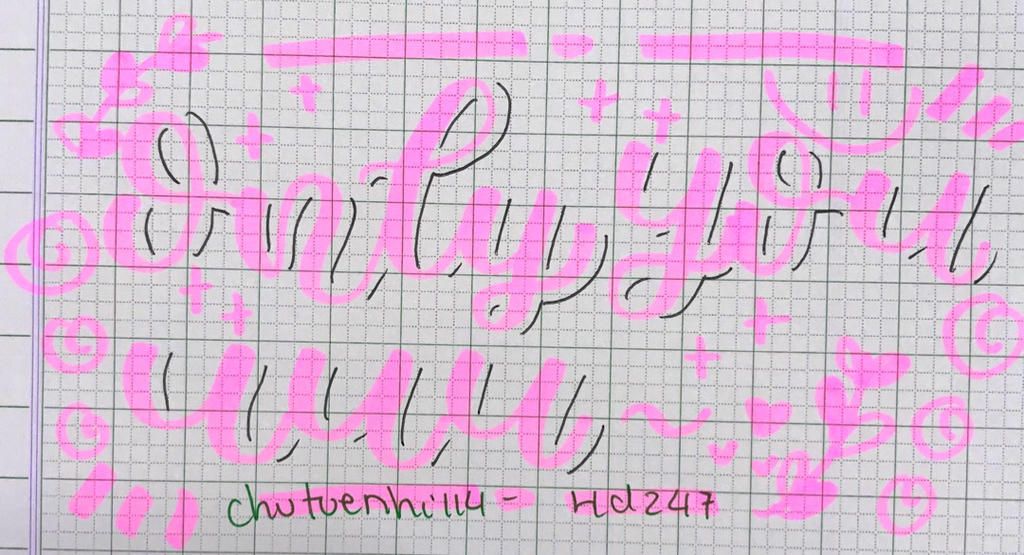 Only you
uuu
chutuenhi114 - Hd247